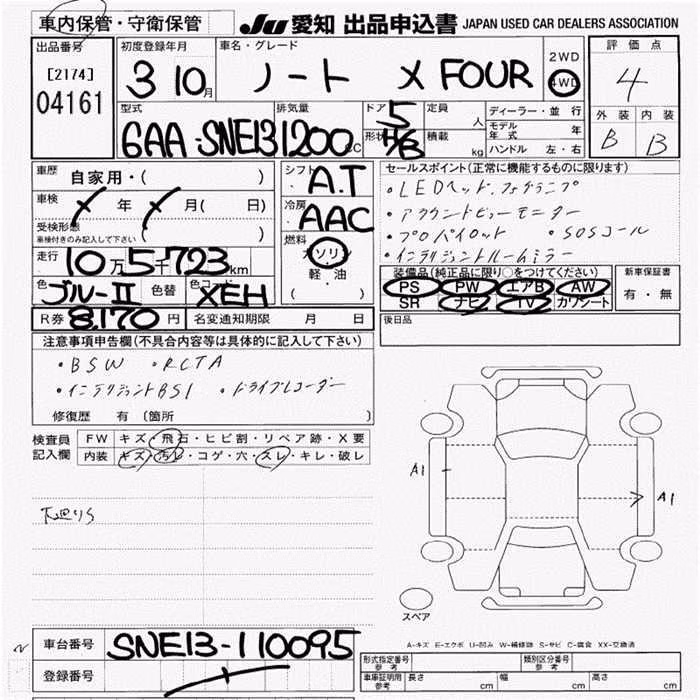 車内保管・守衛保管 JU 愛知 出品申込書 JAPAN USED CAR DEALERS ASSOCIATION
出品番号 初度登録年月 車名・グレード 2WD 評価点
[2174] 3 10月 ノート X FOUR 4WD 4
04161 型式 排気量 ドア 5 定員 人 ディーラー・並行 外装 内装
6AA-SNE13 1200cc 形状 H/B 積載 kg モデル年式 年 B B
ハンドル 左・右
車歴 自家用・( ) シフト A.T セールスポイント(正常に機能するものに限ります)
車検 年 月( 日) 冷房 AAC ・LEDヘッド.フォグランプ
受検形態 ・アラウンドビューモニター
車検付きのみ記入して下さい ( ) 燃料 ・プロパイロット ・SOSコール
走行 10万5千723km ガソリン ・インテリジェントルームミラー
色 ブルーII 色替 色コード XEH 軽・油 装備品(純正品に限り○をつけてください) 新車保証書
( ) PS PW エアB AW 有・無
R券 8,170円 名変通知期限 月 日 SR ナビ TV カワシート
注意事項申告欄(不具合内容等は具体的に記入して下さい) 後日品
・BSW ・RCTA
・インテリジェントBSI ・ドライブレコーダー
修復歴 有 〔箇所 〕
検査員 FW キズ・飛石・ヒビ割・リペア跡・X要
記入欄 内装 キズ・汚レ・コゲ・穴・スレ・キレ・破レ
A1 A1
下廻りS
スペア
A-キズ E-エクボ U-凹み W-補修跡 S-サビ C-腐食 XX-交換済
車台番号 SNE13-110095 形式指定番号 参考 類別区分番号 参考
登録番号 車庫証明用 参考 長さ cm 幅 cm 高さ cm